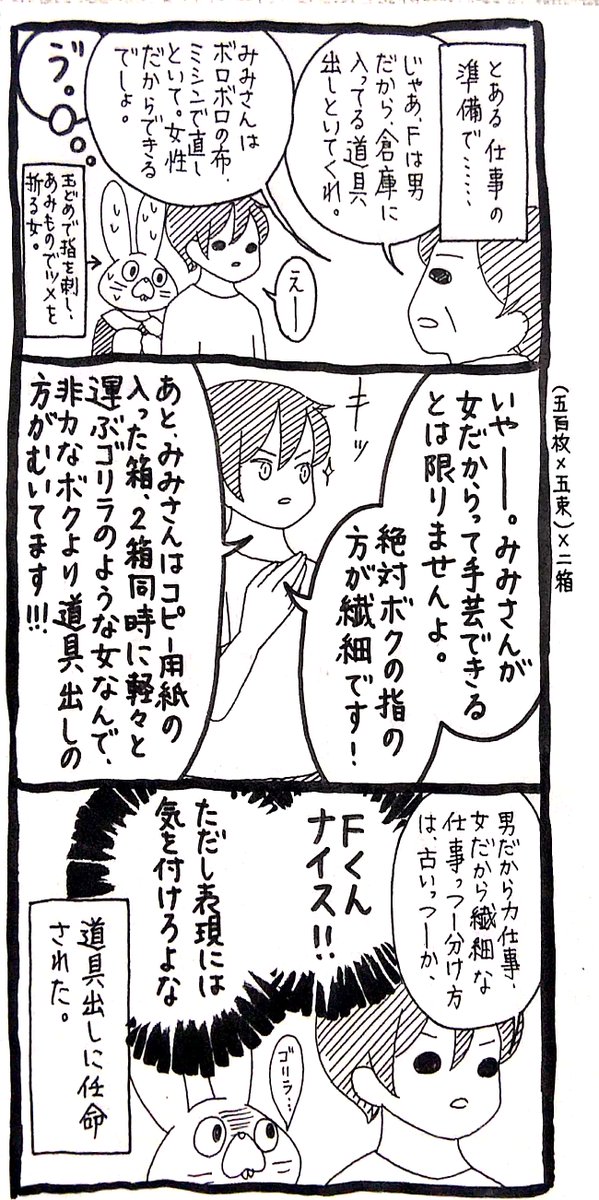 とある仕事の
準備で……、
じゃあ、Fは男
だから、倉庫に
入ってる道具
出しといてくれ。
みみさんは
ボロボロの布、
ミシンで直し
といて。女性
だからできる
でしょ。
ゔ。
えー
玉どめで指を刺し、
あみものでツメを
折る女。
(五百枚×五束)×二箱
いやー。みみさんが
女だからって手芸できる
とは限りませんよ。
絶対ボクの指の
方が繊細です！
キッ
あと、みみさんはコピー用紙の
入った箱、2箱同時に軽々と
運ぶゴリラのような女なんで、
非力なボクより道具出しの
方がむいてます!!!
男だから力仕事、
女だから繊細な
仕事っつー分け方
は、古いっつーか、
Fくん
ナイス!!
ただし表現には
気を付けろよな
ゴリラ…
道具出しに任命
された。